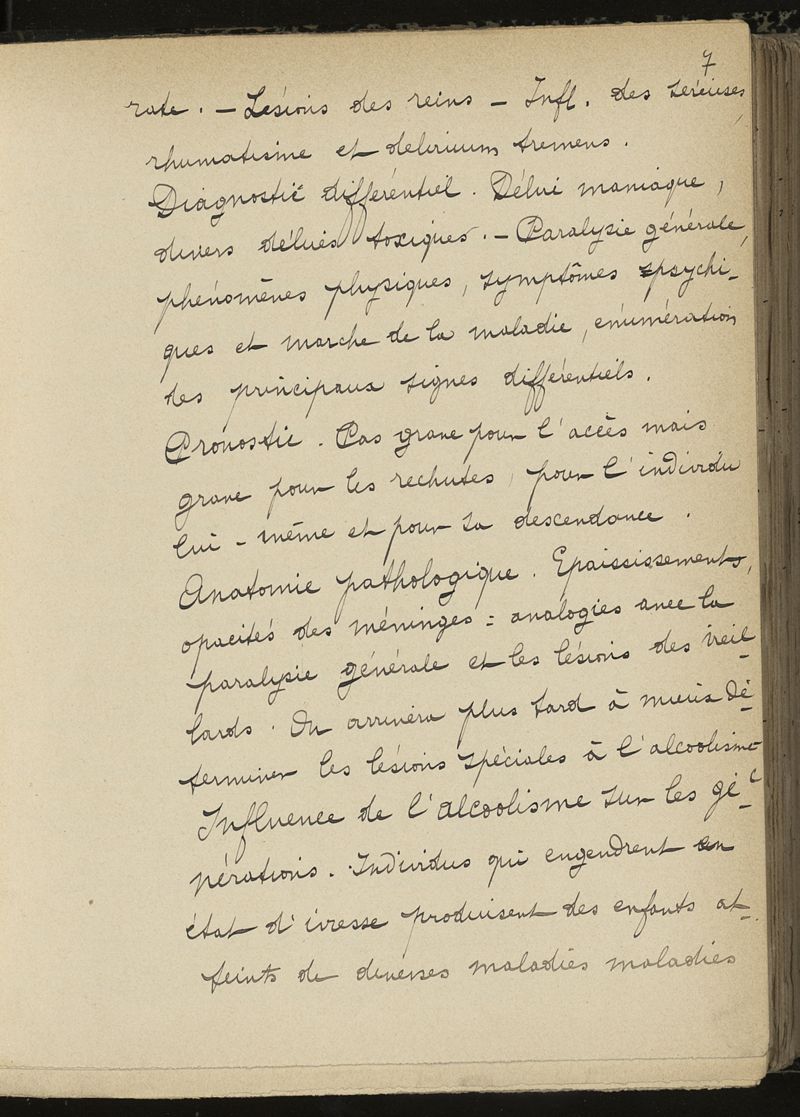 7
rate. — Lésions des reins — Infl. des séreuses,
rhumatisme et delirium tremens.
Diagnostic différentiel. Délire maniaque,
divers délires toxiques. — Paralysie générale,
phénomènes physiques, symptômes psychi-
ques et marche de la maladie, énumération
des principaux signes différentiels.
Pronostic. Pas grave pour l'accès mais
grave pour les rechutes, pour l'individu
lui-même et pour sa descendance.
Anatomie pathologique. Epaississements,
opacités des méninges = analogies avec la
paralysie générale et les lésions des vieil-
lards. On arrivera plus tard à mieux dé-
terminer les lésions spéciales à l'alcoolisme
Influence de l'alcoolisme sur les gé-
nérations. Individus qui engendrent en
état d'ivresse produisent des enfants at-
teints de diverses maladies maladies